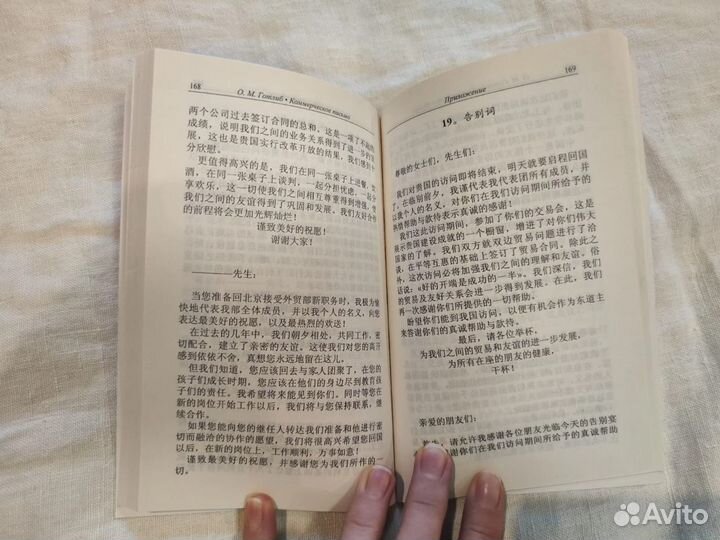 168
О. М. Готлиб • Коммерческое письмо
两个公司过去签订合同的总和。这是一项了不起的
成绩，说明我们之间的业务关系得到了进一步的发
展，这也是贵国实行改革开放的结果，我们感到十
分欣慰。
更值得高兴的是，我们在同一张桌子上进餐、饮
酒，在同一张桌子上谈判，一起分担忧虑，一起分
享欢乐，这一切使我们之间相互尊重得到增强，使
我们之间的友谊得到了巩固和发展，我们友好合作
的前程将会更加光辉灿烂！
谨致美好的祝愿！
谢谢大家！
———先生：
当您准备回北京接受外贸部新职务时，我极为愉
快地代表我部全体成员，并以我个人的名义，向您
表达最美好的祝愿，以及最热烈的欢送！
在过去的几年中，我们朝夕相处，共同工作，密
切配合，建立了亲密的友谊。这使我们对您的离开
感到依依不舍，真想您永远地留在这儿。
但我们想，您应该回去与家人团聚了，在您的
孩子们成长时期，您应该在他们的身边尽到教育孩
子们的责任。我希望将来能见到你们，同时等您在
新的岗位开始工作以后，我们将与您保持联系，继
续合作。
如果您能向您的继任人转达我们准备和他进行密
切而融洽的协作的愿望，我们将很高兴希望您回国
以后，在新的岗位上，工作顺利，万事如意！
谨致最美好的祝愿，并感谢您为我们所作的一
切。
Приложение
169
19。告别词
尊敬的女士们，先生们：
我们对贵国的访问即将结束，明天就要启程回国
了，在临别前夕，我谨代表我代表团所有成员，并
以我个人的名义，对你们在我们访问期间所给予的
热情帮助与款待表示真诚的感谢！
我们这此访问期间，参加了你们的交易会，这是
展示贵国建设成就的一个橱窗，增进了对你们伟大
国家的了解。我们双方就双边贸易问题进行了洽
谈，在平等互惠的基础上签订了贸易合同。除此之
外，这次访问必将加强我们之间的理解和友谊。俗
话说：«好的开端是成功的一半»。我们深信，我们
的贸易及友好关系会进一步得到发展。在此，我们
再一次感谢你们所提供的一切帮助。
盼望你们能到我国访问，以便有机会作为东道主
来答谢你们的真诚帮助与款待。
最后，请各位举杯，
为我们之间的贸易和友谊的进一步发展，
为所有在座的朋友的健康，
干杯！
亲爱的朋友们：
请允许我感谢各位朋友光临今天的告别宴
谢你们在我们访问期间所给予的真诚帮助
Avito